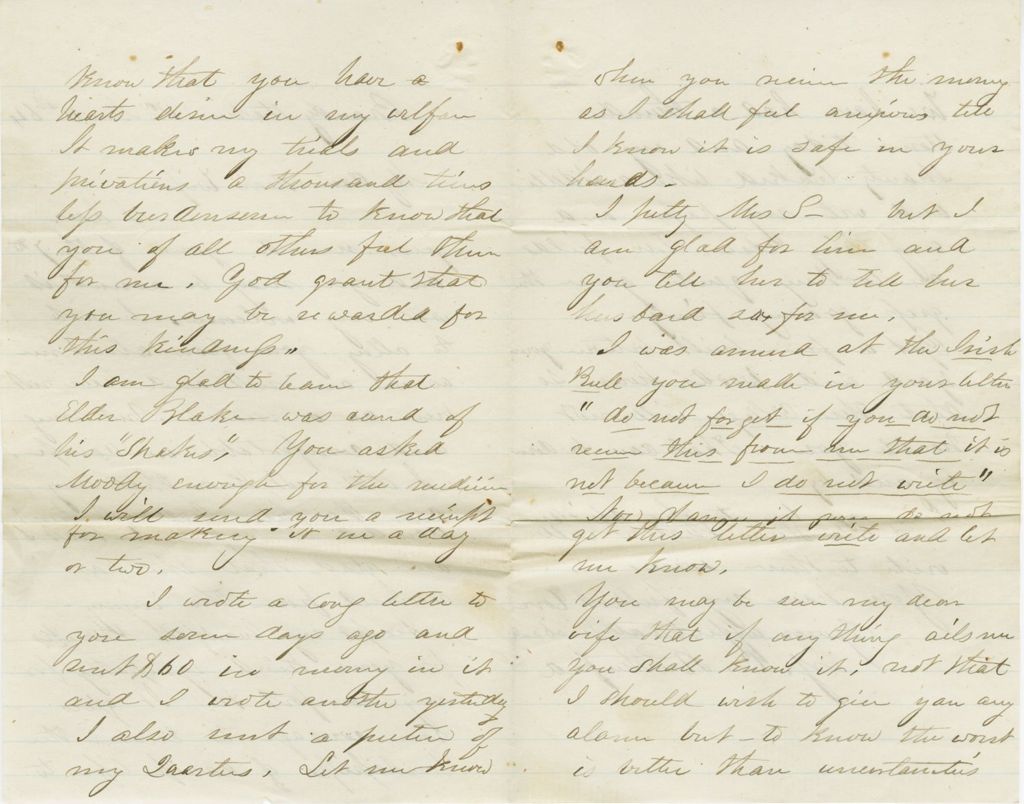 Know that you have a
hearts desire in my welfare
It makes my trials and
privations a thousand times
less burdensome to know that
you of all others feel them
for me. God grant that
you may be rewarded for
this kindness.
I am glad to learn that
Elder Blake was cured of
his "Shakes," You asked
Moody enough for the medicine
I will send you a receipt
for making it in a day
or two.
I wrote a long letter to
you some days ago and
sent $60 in money in it
and I wrote another yesterday
I also sent a picture of
my Quarters. Let me know
when you receive the money
as I shall feel anxious till
I know it is safe in your
hands.
I pitty Mrs S— but I
am glad for him and
you tell her to tell her
husband so for me.
I was amused at the Irish
Bull you made in your letter
"do not forget if you do not
receive this from me that it is
not because I do not write"
Now if you do not
get this letter write and let
me know.
You may be sure my dear
wife that if any thing ails me
you shall know it, not that
I should wish to give you any
alarm but – to know the worst
is better than uncertainties